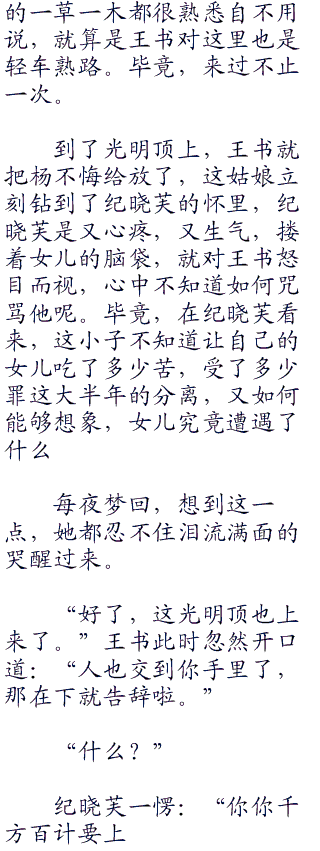 的一草一木都很熟悉自不用
说，就算是王书对这里也是
轻车熟路。毕竟，来过不止
一次。
到了光明顶上，王书就
把杨不悔给放了，这姑娘立
刻钻到了纪晓芙的怀里，纪
晓芙是又心疼，又生气，搂
着女儿的脑袋，就对王书怒
目而视，心中不知道如何咒
骂他呢。毕竟，在纪晓芙看
来，这小子不知道让自己的
女儿吃了多少苦，受了多少
罪这大半年的分离，又如何
能够想象，女儿究竟遭遇了
什么
每夜梦回，想到这一
点，她都忍不住泪流满面的
哭醒过来。
“好了，这光明顶也上
来了。”王书此时忽然开口
道：“人也交到你手里了，
那在下就告辞啦。”
“什么？”
纪晓芙一愣：“你你千
方百计要上